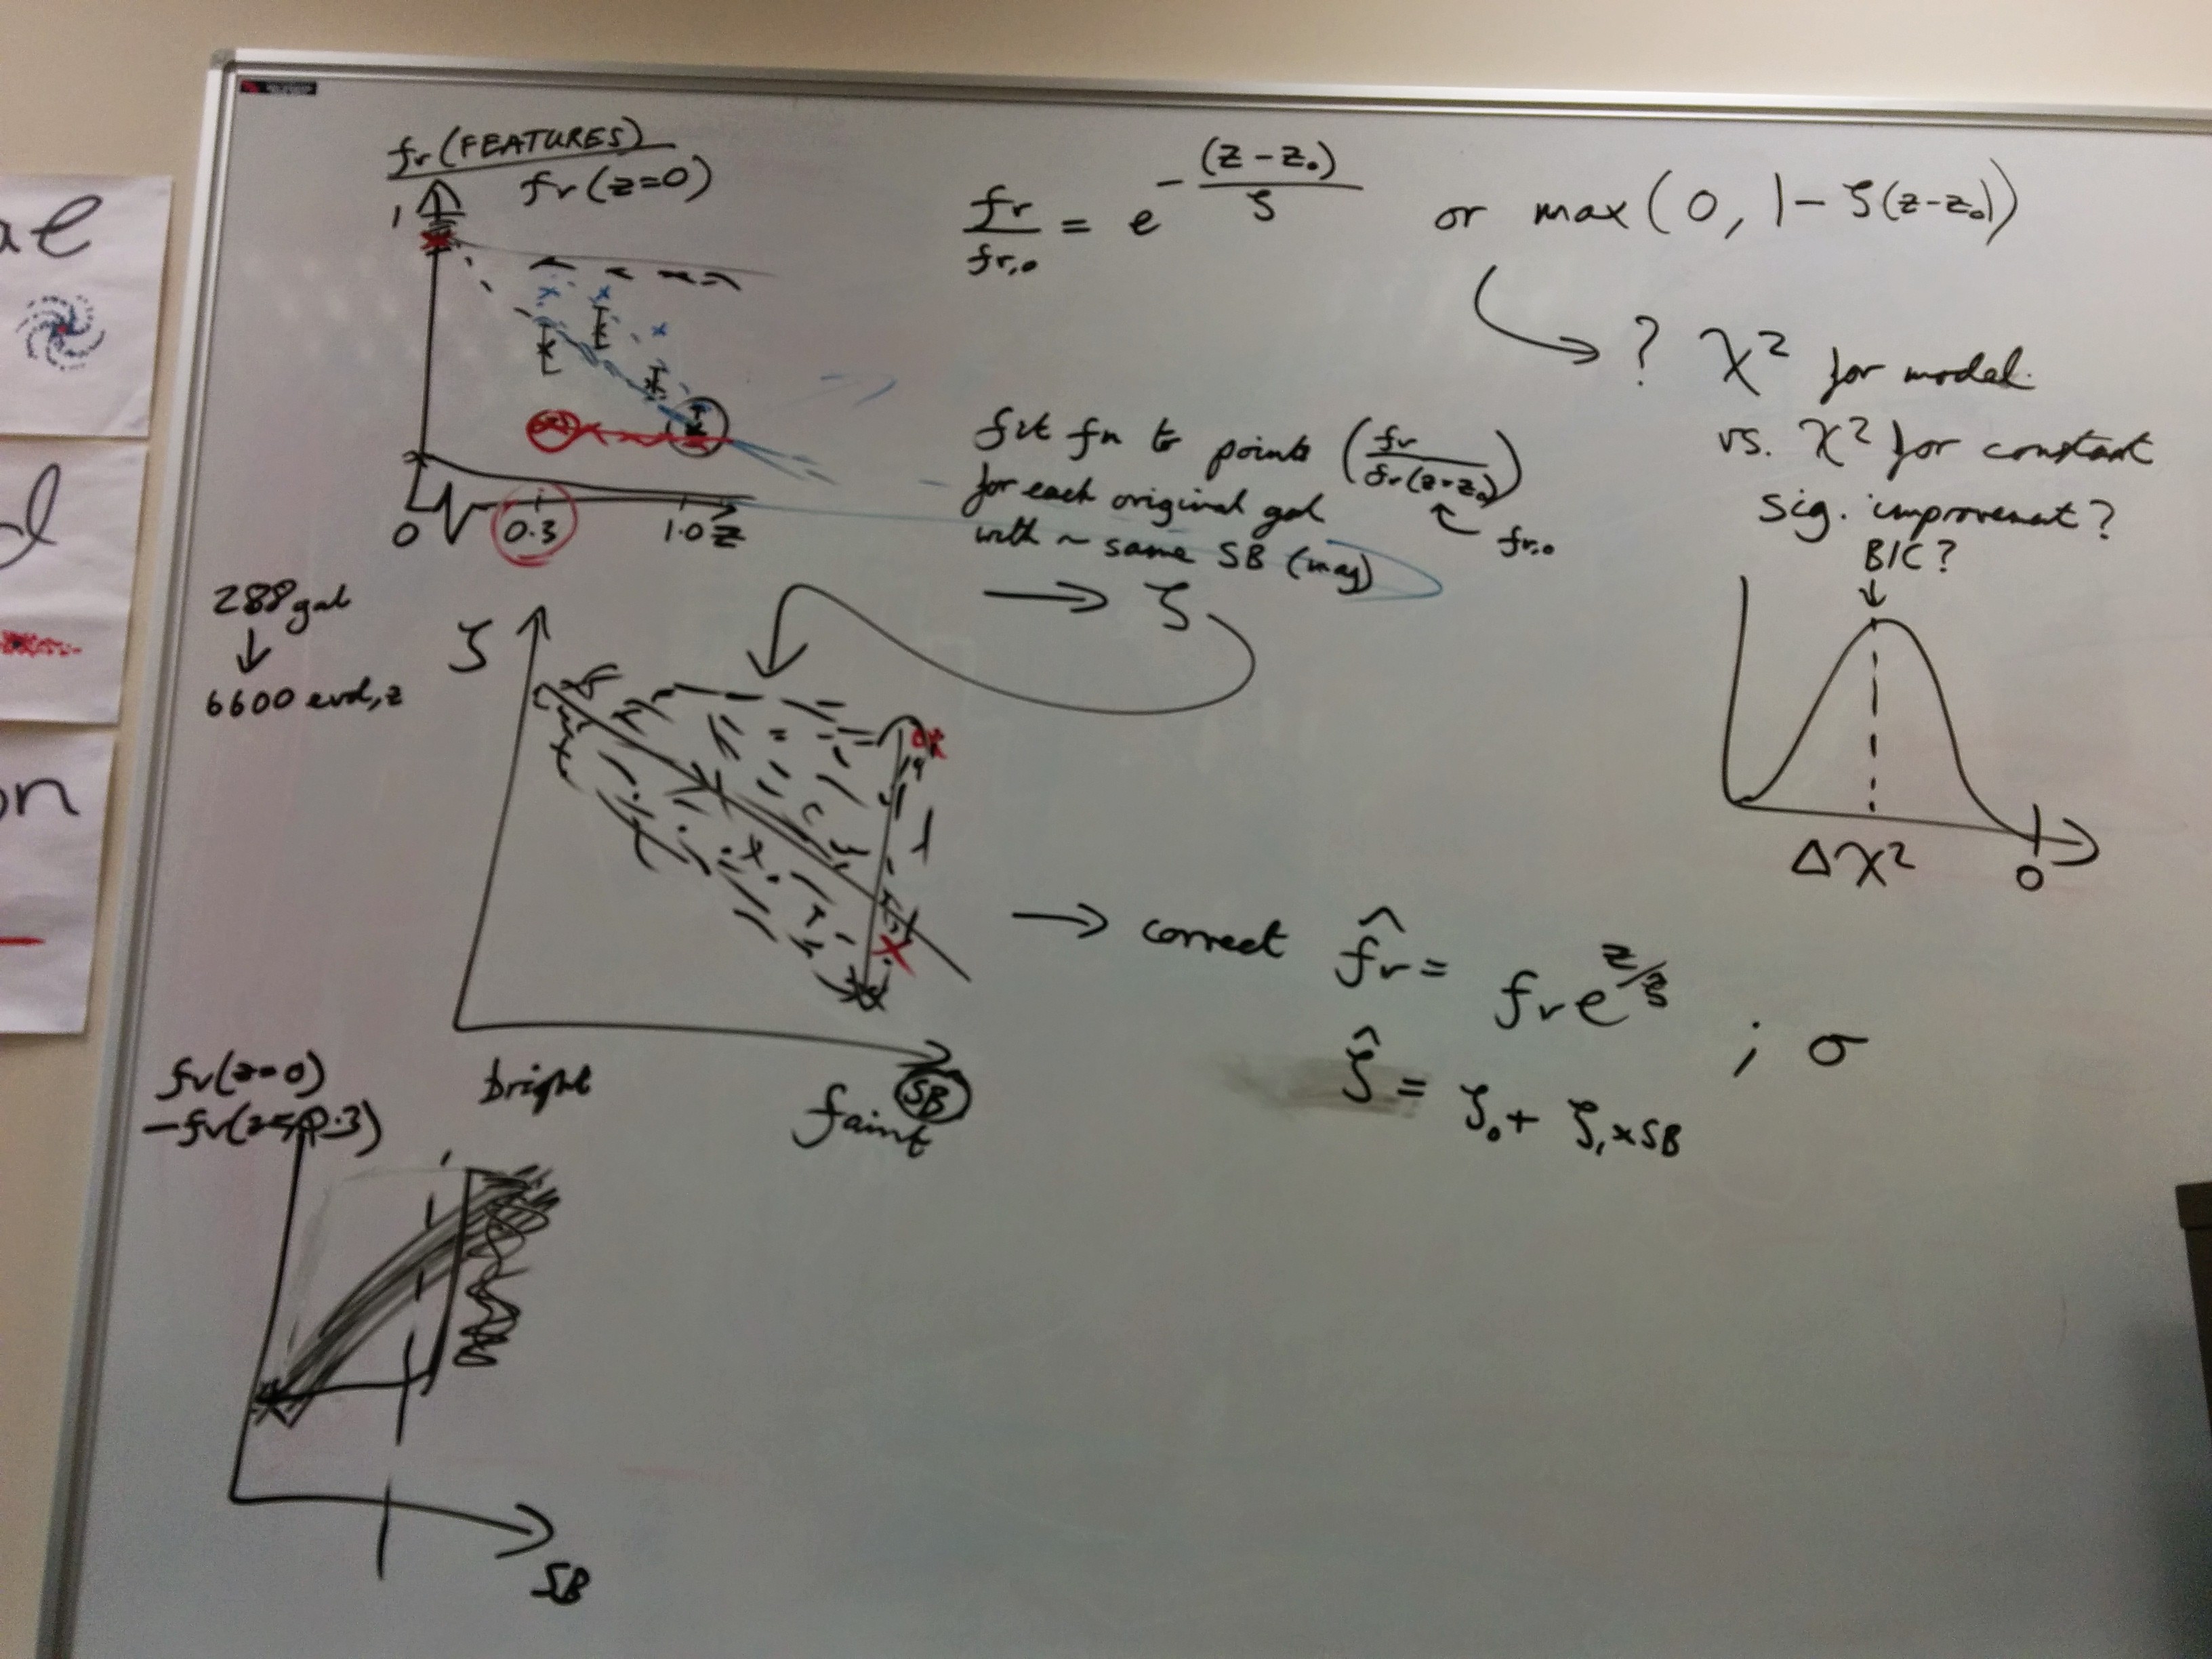 fr (FEATURES)
fr (z=0)
1
0
0.3
1.0 z
fr / fr,0 = e^-(z-z0)/ζ or max(0, 1-ζ(z-z0))
? χ² for model.
vs. χ² for constant
sig. improvement?
BIC?
Δχ²
0
fit fn to points (fr / fr(z=z0))
for each original gal
with ~ same SB (mag)
fr,0
→ ζ
288 gal
↓
6600 evol,z
ζ
bright
faint
SB
→ correct f̂r = fr e^z/ζ ; σ
ζ̂ = ζ0 + ζ1 x SB
fr(z=0)
SB
ae
d
on